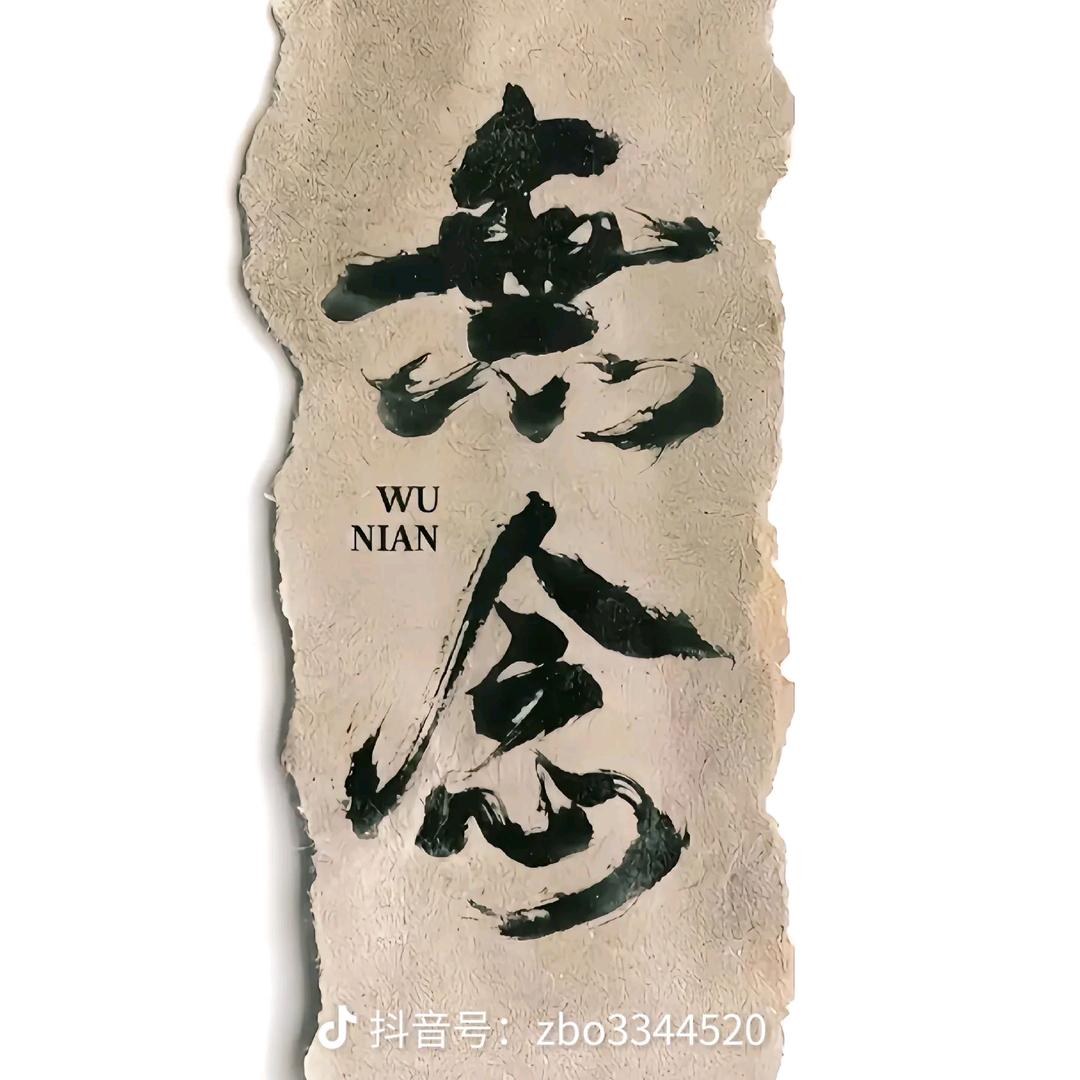 無念
WU
NIAN
抖音号：zbo3344520